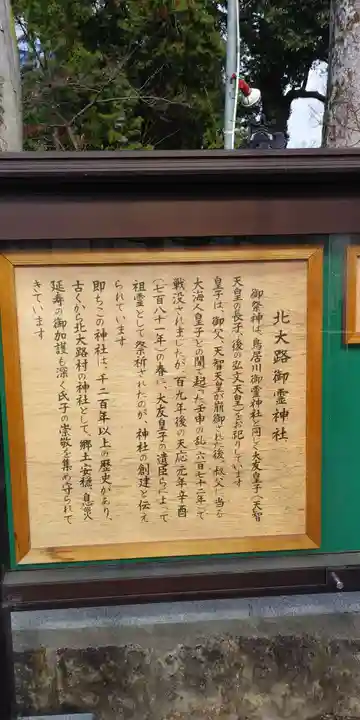 北大路御霊神社
御祭神は、鳥居川御霊神社と同じ大友皇子(天智
天皇の長子、後の弘文天皇)をお祀りしています
皇子は、御父、天智天皇が崩御された後、叔父に当る
大海人皇子との間で起った壬申の乱(六百七十二年)で
戦没されましたが、百九年後の天応元年辛酉
(七百八十一年)の春に、大友皇子の遺臣らによって
祖霊として祭祈されたのが、神社の創建と伝え
られています
即ちこの神社は、千二百年以上の歴史があり、
古くから北大路村の神社として、郷土安穏、息災
延寿の御加護も深く氏子の崇敬を集め守られて
きています